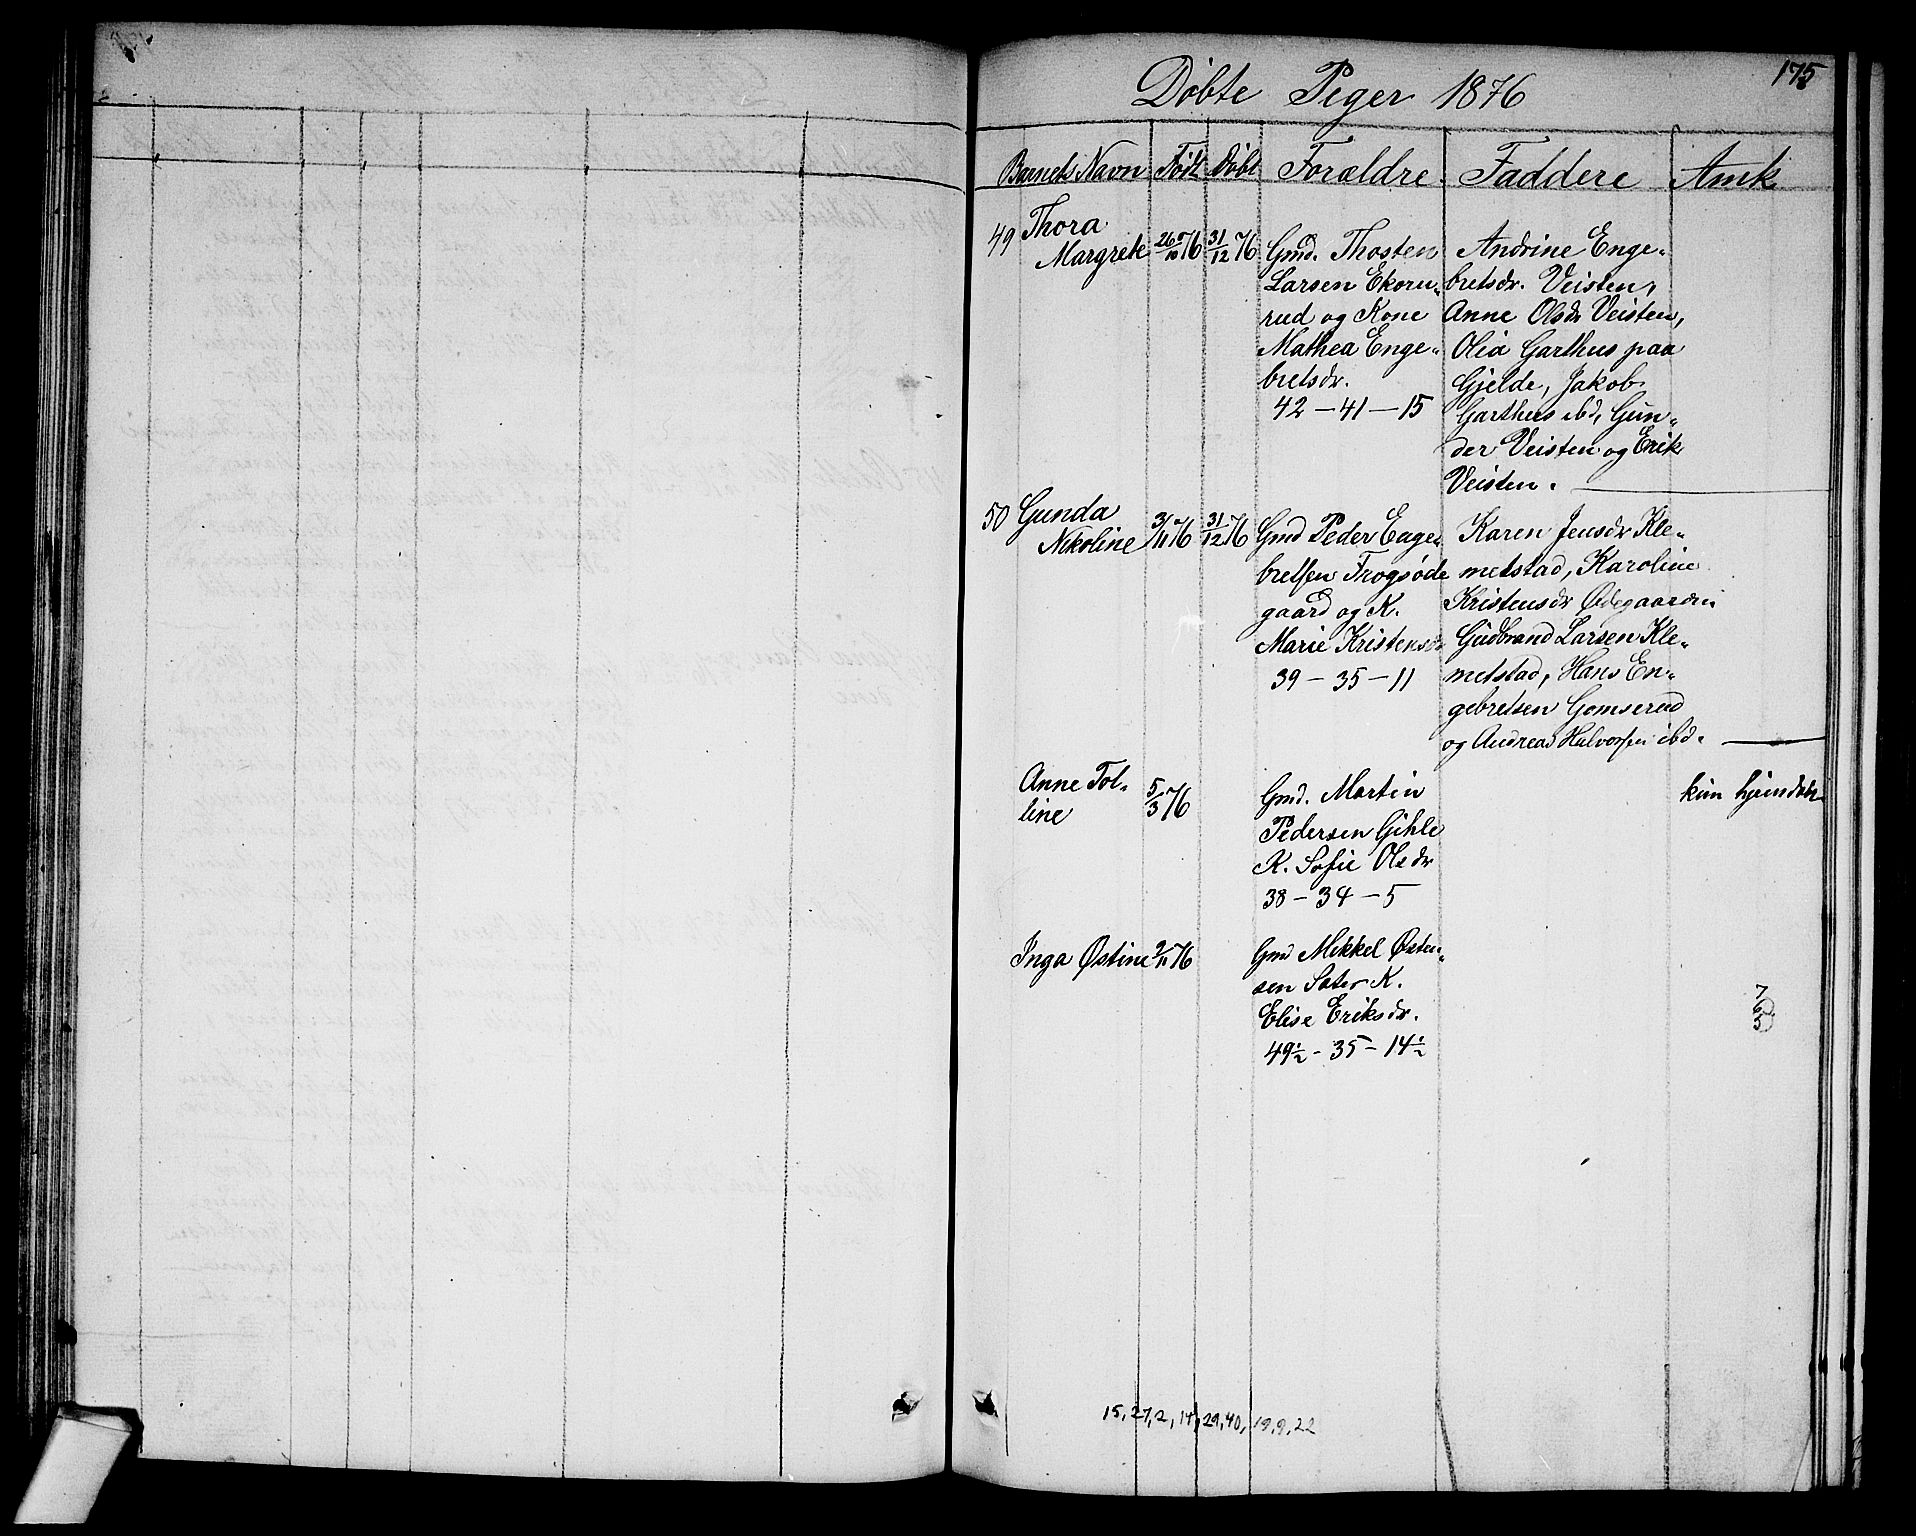 175
Döbte Piger 1876
Barnets Navn Födt Döbt Forældre Faddere Anmk.
49 Thora
Margrete 26/10 76 31/12 76
Gmd. Thosten
Larsen Ekoru-
rud og Kone
Mathea Enge-
bretsdr.
42 – 41 – 15
Andrine Enge-
bretsdr. Veisten,
Anne Olsdr Veisten,
Olia Garthus paa
Gjelde, Jakob
Garthus ibd, Gun-
der Veisten og Erik
Veisten.
50 Gunda
Nikoline 3/11 76 31/12 76
Gmd Peder Enge-
bretsen Frogsøde
gaard og K.
Marie Kristensdr
39 – 35 – 11
Karen Jensdr Kle-
metstad, Karoline
Kristensdr Ødegaarden
Gudbrand Larsen Kle-
metstad, Hans En-
gebretsen Gomserud
og Andreas Halvorsen ibd.
Anne Tol-
line 5/3 76
Gmd. Martin
Pedersen Gihle
K. Sofie Olsdr
38 – 34 – 5
kun hjemdøbt
Inga Østine 2/11 76
Gmd Mikkel Østen-
sen Sater K.
Elise Eriksdr.
49½ – 35 – 14½
7
6
5
15, 27, 2, 14, 29, 40, 19, 9, 22